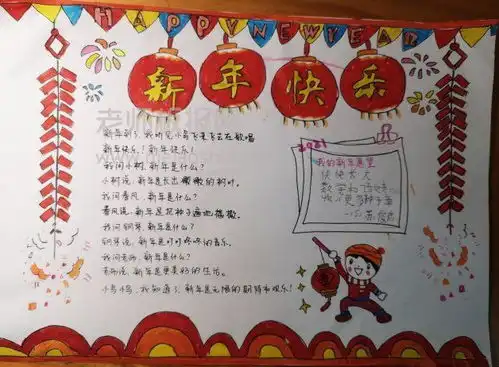 HAPPY NEW YEAR
新年快乐
新年到了,我听见小鸟飞来飞去在歌唱
新年快乐!新年快乐!
我问小树,新年是什么?
小树说,新年是长出嫩嫩的树叶。
我问春风,新年是什么?
春风说,新年是把种子遍地播撒。
我问钢琴,新年是什么?
钢琴说,新年是叮叮咚咚的音乐。
我问老师,新年是什么?
老师说,新年是更美好的生活。
小鸟鸟,我知道了,新年是无限的期待和欢乐!
2021
我的新年愿望
快快长大